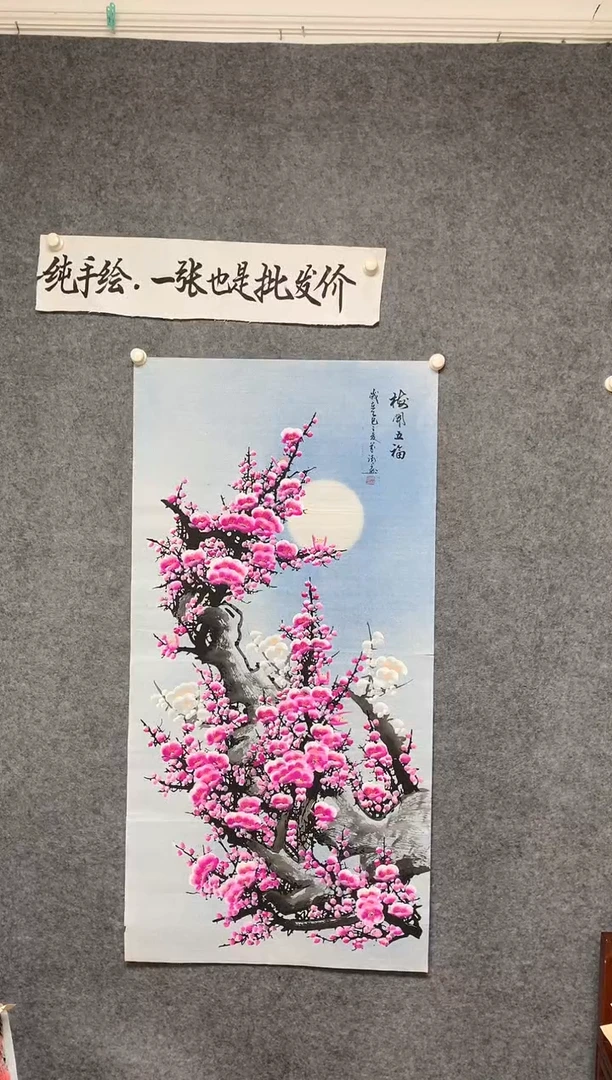 纯手绘.一张也是批发价
梅开五福